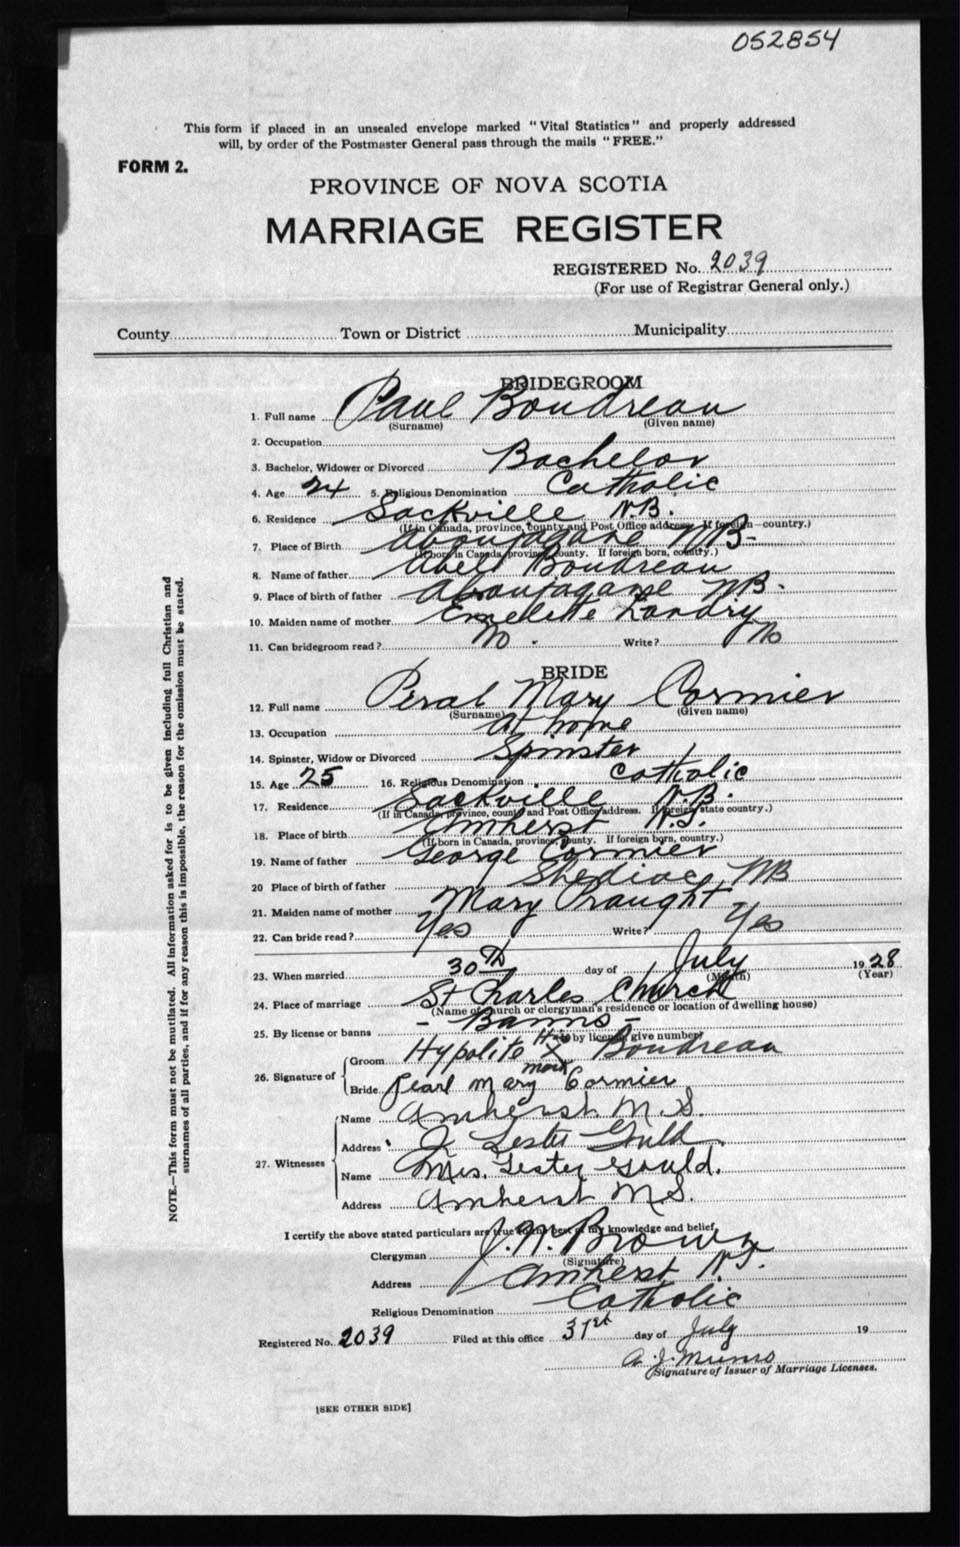 052854
This form if placed in an unsealed envelope marked "Vital Statistics" and properly addressed
will, by order of the Postmaster General pass through the mails "FREE."
FORM 2.
PROVINCE OF NOVA SCOTIA
MARRIAGE REGISTER
REGISTERED No. 2039
(For use of Registrar General only.)
County Town or District Municipality
BRIDEGROOM
1. Full name Paul Boudreau
(Surname) (Given name)
2. Occupation
3. Bachelor, Widower or Divorced Bachelor
4. Age 24 5. Religious Denomination Catholic
6. Residence Sackville N.B.
(If in Canada, province, county and Post Office address. If foreign—country.)
7. Place of Birth Aboujagane NB-
(If born in Canada, province, county. If foreign born, country.)
8. Name of father Abel Boudreau
9. Place of birth of father Aboujagane NB-
10. Maiden name of mother Landry
11. Can bridegroom read? No Write? No
BRIDE
12. Full name Peral Mary Cormier
(Surname) (Given name)
13. Occupation At home
14. Spinster, Widow or Divorced Spinster
15. Age 25 16. Religious Denomination Catholic
17. Residence Sackville N.B.
(If in Canada, province, county and Post Office address. If foreign state country.)
18. Place of birth Amherst N.S.
(If born in Canada, province, county. If foreign born, country.)
19. Name of father George Cormier
20 Place of birth of father Shediac, NB
21. Maiden name of mother Mary Praught
22. Can bride read? Yes Write? Yes
23. When married 30th day of July 1928
(Month) (Year)
24. Place of marriage St Charles Church
(Name of church or clergyman's residence or location of dwelling house)
25. By license or banns - Banns -
by license, give number
26. Signature of Groom Hypolite his X mark Boudreau
Bride Pearl Mary Cormier
27. Witnesses Name Amherst N.S.
Address J Lester Gould
Name Mrs. Lester Gould.
Address Amherst N.S.
I certify the above stated particulars are true to the best of my knowledge and belief.
Clergyman J.N. Brown
(Signature)
Address Amherst N.S.
Religious Denomination Catholic
Registered No. 2039 Filed at this office 31st day of July 19
A. J. Munro
Signature of Issuer of Marriage Licenses.
[SEE OTHER SIDE]
NOTE.—This form must not be mutilated. All information asked for is to be given including full Christian and
surnames of all parties, and if for any reason this is impossible, the reason for the omission must be stated.